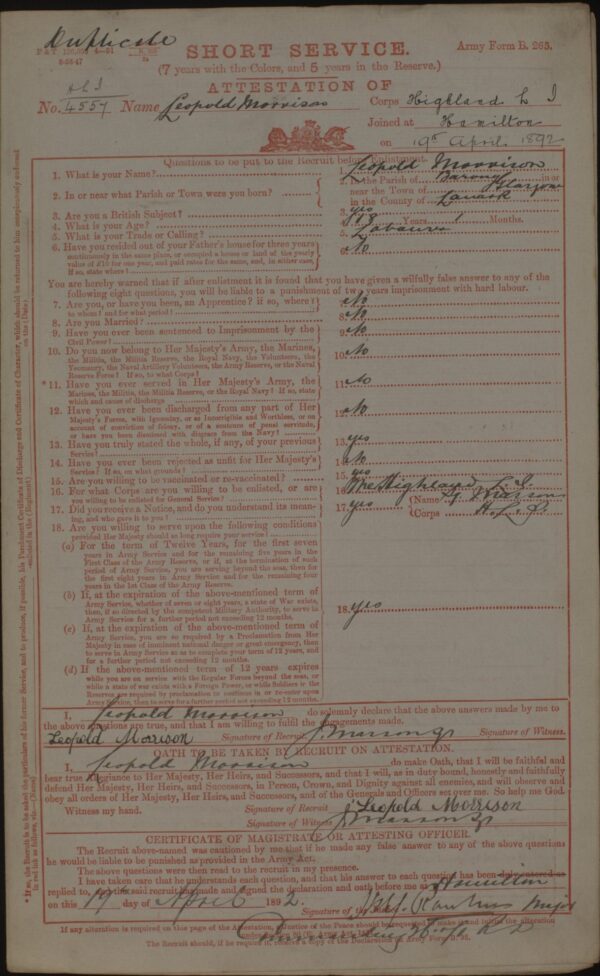 Duplicate
SHORT SERVICE.
Army Form B. 265.
(7 years with the Colors, and 5 years in the Reserve.)
ATTESTATION OF
No. 4557 Name Leopold Morrison Corps Highland L I
Joined at Hamilton
on 19th April 1892
Questions to be put to the Recruit before Enlistment.
1. What is your Name? Leopold Morrison
2. In or near what Parish or Town were you born? 2. In the Parish of Barony in or
near the Town of Glasgow
in the County of Lanark
3. Are you a British Subject? 3. yes
4. What is your Age? 18 Years 1 Months.
5. What is your Trade or Calling? 5. Labourer
6. Have you resided out of your Father's house for three years 6. No
continuously in the same place, or occupied a house or land of the yearly
value of £10 for one year, and paid rates for the same, and, in either case,
If so, state where?
You are hereby warned that if after enlistment it is found that you have given a wilfully false answer to any of the
following eight questions, you will be liable to a punishment of two years imprisonment with hard labour.
7. Are you, or have you been, an Apprentice? if so, where? No
to whom? and for what period?
8. Are you Married? 8. No
9. Have you ever been sentenced to Imprisonment by the 9. No
Civil Power?
10. Do you now belong to Her Majesty's Army, the Marines, 10. No
the Militia, the Militia Reserve, the Royal Navy, the Volunteers, the
Yeomanry, the Naval Artillery Volunteers, the Army Reserve, or the Naval
Reserve Force? If so, to what Corps?
*11. Have you ever served in Her Majesty's Army, the 11. No
Marines, the Militia, the Militia Reserve, or the Royal Navy? If so, state
which and cause of discharge
12. Have you ever been discharged from any part of Her 12. No
Majesty's Forces, with Ignominy, or as Incorrigible and Worthless, or on
account of conviction of felony, or of a sentence of penal servitude,
or have you been dismissed with disgrace from the Navy?
13. Have you truly stated the whole, if any, of your previous 13. yes
Service?
14. Have you ever been rejected as unfit for Her Majesty's 14. No
Service? If so, on what grounds?
15. Are you willing to be vaccinated or re-vaccinated? 15. yes
16. For what Corps are you willing to be enlisted, or are 16. The Highland L. I.
you willing to be enlisted for General Service?
17. Did you receive a Notice, and do you understand its mean- 17. yes (Name J. Masson
ing, and who gave it to you? (Corps H. L. I.
18. Are you willing to serve upon the following conditions
provided Her Majesty should so long require your service?
(a) For the term of Twelve Years, for the first seven
years in Army Service and for the remaining five years in the
First Class of the Army Reserve, or if, at the termination of such
period of Army Service, you are serving beyond the seas, then for
the first eight years in Army Service and for the remaining four
years in the 1st Class of the Army Reserve.
(b) If, at the expiration of the above-mentioned term of
Army Service, whether of seven or eight years, a state of War exists,
then, if so directed by the competent Military Authority, to serve in
Army Service for a further period not exceeding 12 months. 18. yes
(c) If, at the expiration of the above-mentioned term of
Army Service, you are so required by a Proclamation from Her
Majesty in case of imminent national danger or great emergency, then
to serve in Army Service so as to complete your term of 12 years, and
for a further period not exceeding 12 months.
(d) If the above-mentioned term of 12 years expires
while you are on service with the Regular Forces beyond the seas, or
while a state of war exists with a Foreign Power, or while Soldiers in the
Reserves are required by proclamation to continue in or re-enter upon
Army Service, then to serve for a further period not exceeding 12 months.
I, Leopold Morrison do solemnly declare that the above answers made by me to
the above questions are true, and that I am willing to fulfil the engagements made.
Leopold Morrison Signature of Recruit. J. Masson Signature of Witness.
OATH TO BE TAKEN BY RECRUIT ON ATTESTATION.
I, Leopold Morrison do make Oath, that I will be faithful and
bear true Allegiance to Her Majesty, Her Heirs, and Successors, and that I will, as in duty bound, honestly and faithfully
defend Her Majesty, Her Heirs, and Successors, in Person, Crown, and Dignity against all enemies, and will observe and
obey all orders of Her Majesty, Her Heirs, and Successors, and of the Generals and Officers set over me. So help me God
Witness my hand. Signature of Recruit Leopold Morrison
Signature of Witness J. Masson
CERTIFICATE OF MAGISTRATE OR ATTESTING OFFICER.
The Recruit above-named was cautioned by me that if he made any false answer to any of the above questions
he would be liable to be punished as provided in the Army Act.
The above questions were then read to the recruit in my presence.
I have taken care that he understands each question, and that his answer to each question has been duly entered as
replied to, and the said recruit has made and signed the declaration and oath before me at Hamilton
on this 19th day of April 1892.
Signature of the Major
Commanding